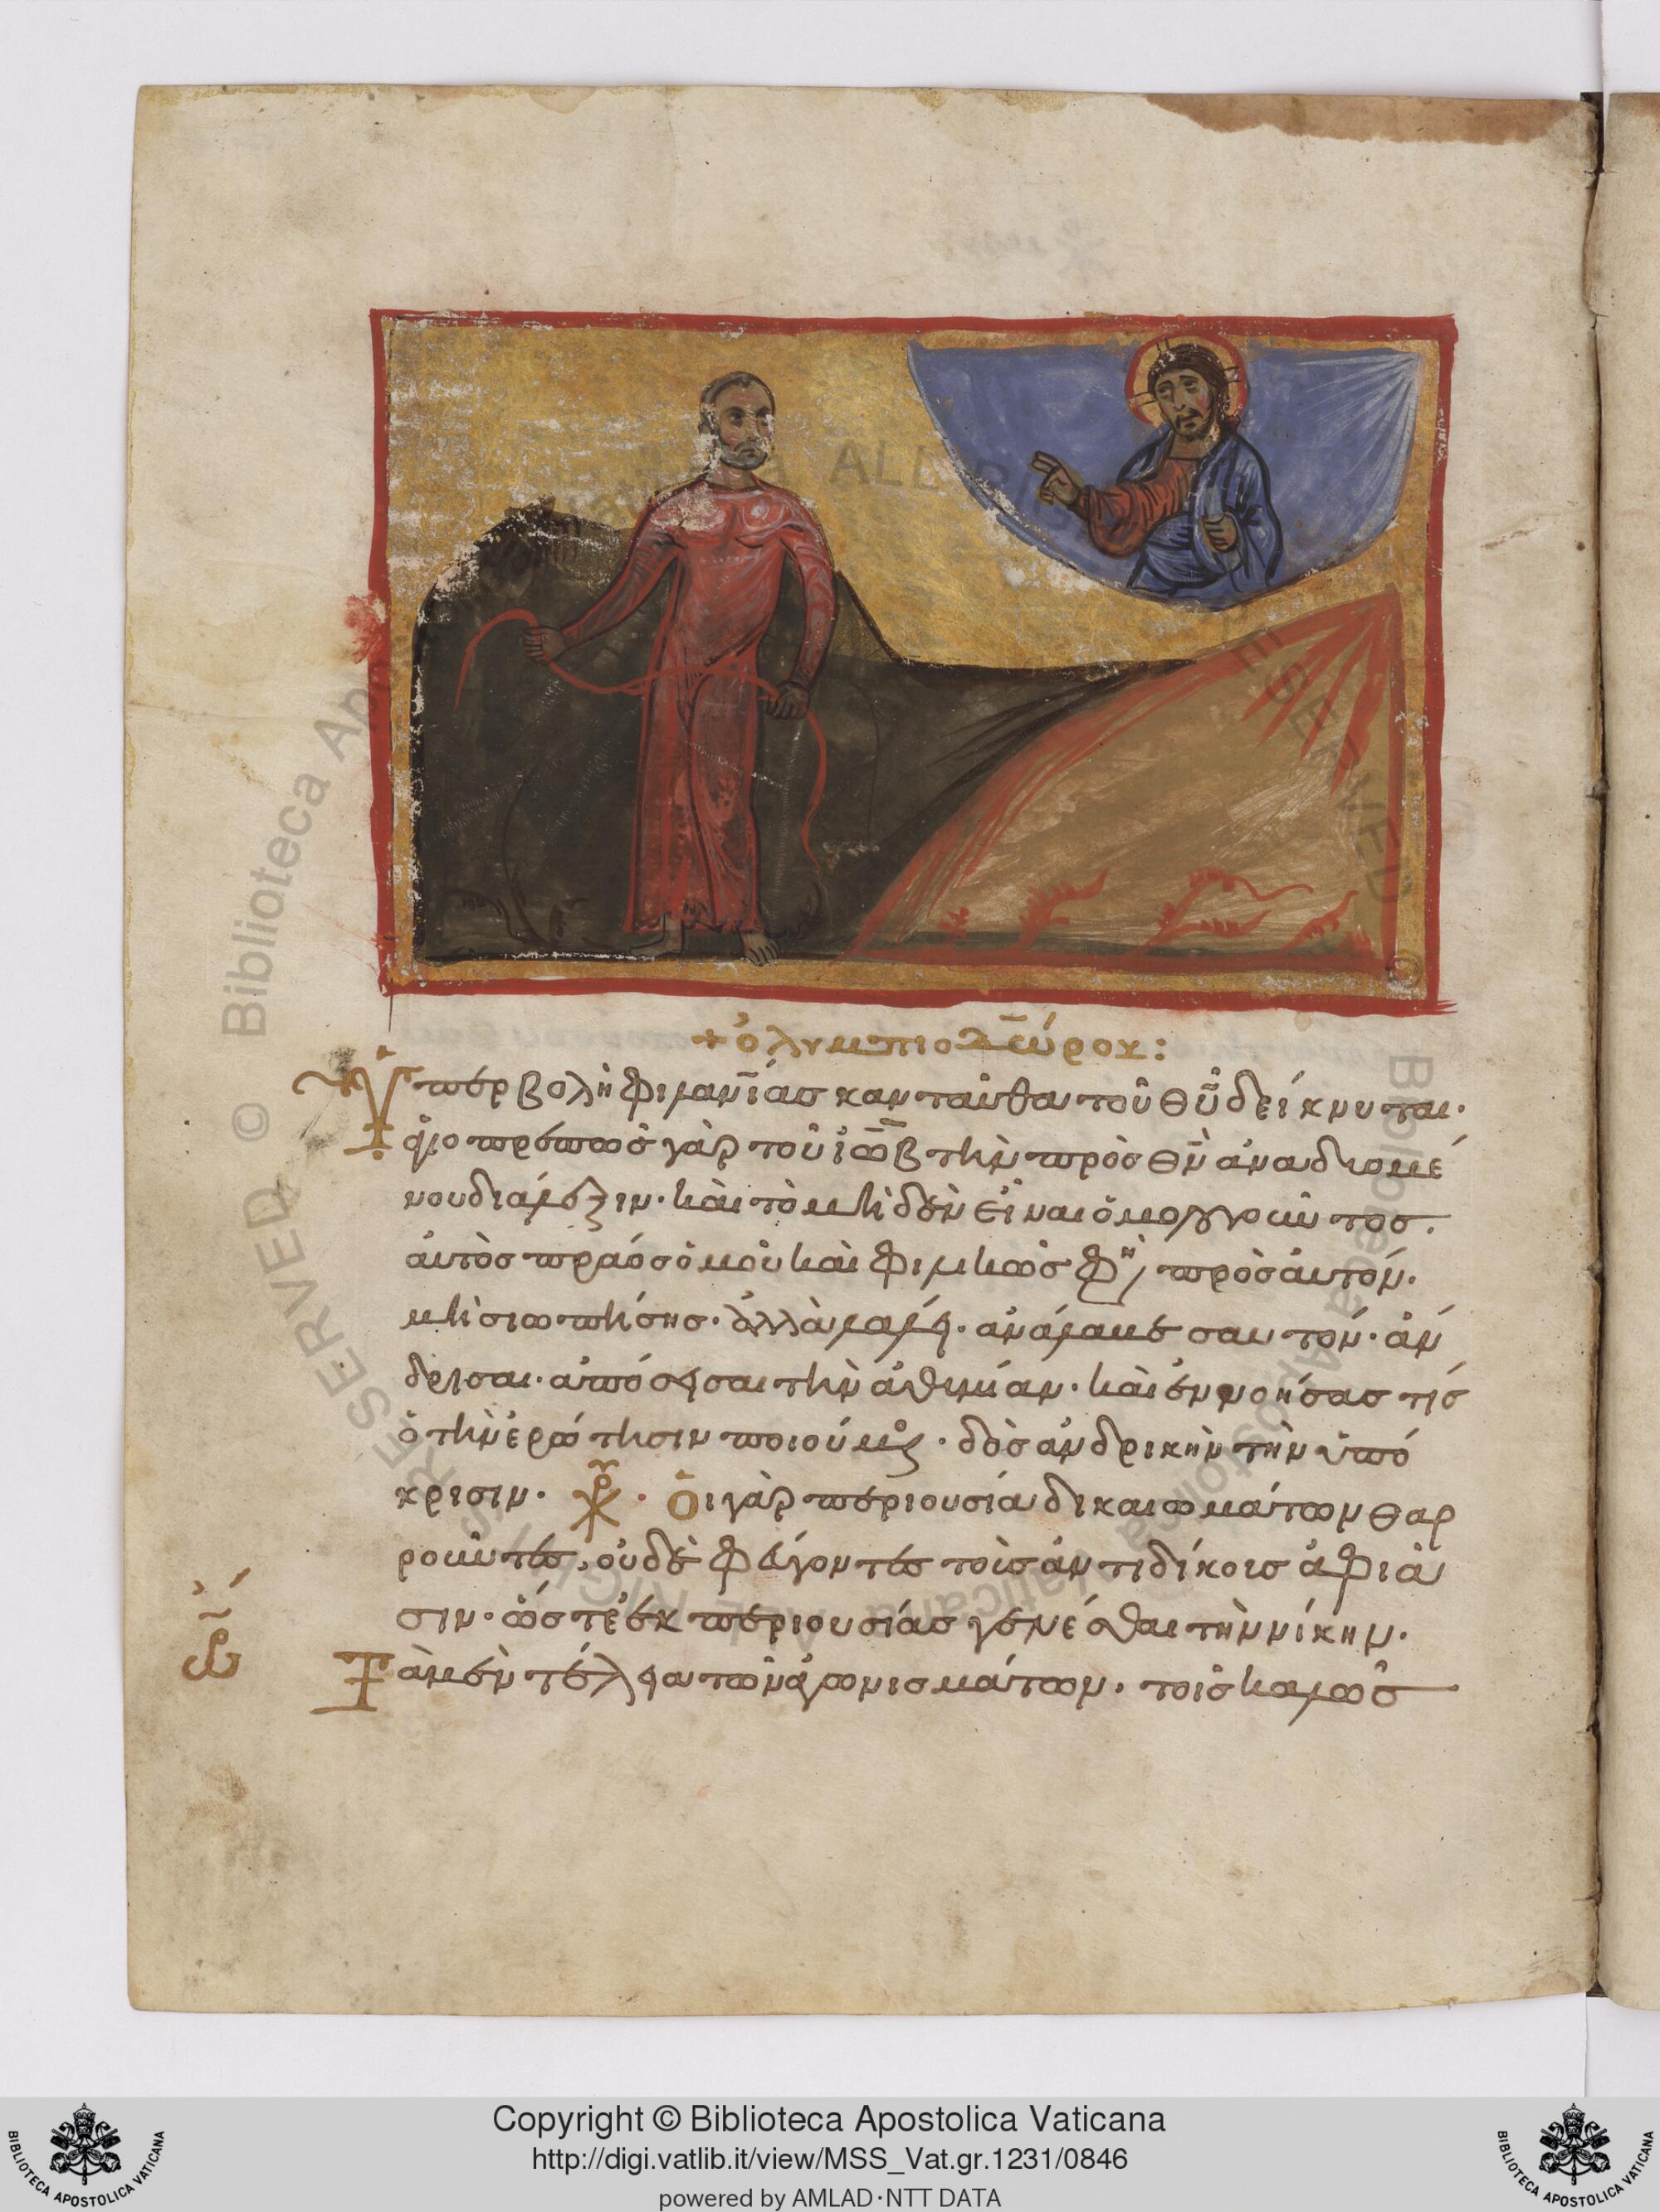 + ὀλυμπιοδώρου:
Ὑπερβολὴ φιλανΐας κανταῦθα τοῦ θῡ δείκνυται·
φιοπρεπῶς γὰρ τοῦ ἰὼβ τὴν πρὸς θν̄ ἀναδυομέ
νου διάλεξιν· καὶ τὸ μὴδὲν εἶναι ὁμολογοῦντος.
ἀυτὸς πράος ὁμοῦ καὶ φιλικῶς φη πρὸς ἀυτόν.
μὴ σιωπήσης· ἀλλὰ
σαυτόν· ἀν
δρισαι· ἀπόσεισαι τὴν ἀθυμίαν· καὶ ἐννοήσας τίς
ὁ τὴν ἐρώτησιν ποιούμε· δὸς ἀνδρικὴν τὴν ὑπό
κρισιν. Χρ · Οἱ γὰρ περιουσία δικαιωμάτων θαρ
ροῦντες, οὐδὲ φεύγοντες τοῖς ἀντιδίκοις ἀφιᾶ
σιν· ὥστε ἐκ περιουσίας γενέσθαι τὴν νίκην.
Τὰ μὲν τέλεα τῶν ἀγωνισμάτων· τοῖς καλῶς
Copyright © Biblioteca Apostolica Vaticana
http://digi.vatlib.it/view/MSS_Vat.gr.1231/0846
powered by AMLAD·NTT DATA
BIBLIOTECA APOSTOLICA VATICANA
BIBLIOTECA APOSTOLICA VATICANA